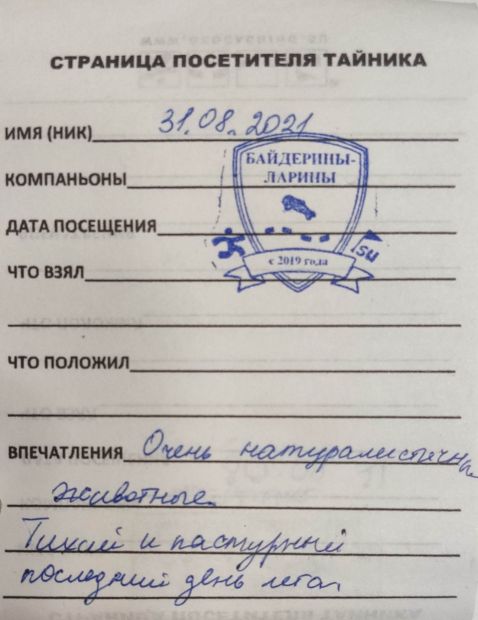 СТРАНИЦА ПОСЕТИТЕЛЯ ТАЙНИКА
31.08.2021
ИМЯ (НИК)
БАЙДЕРИНЫ-
ЛАРИНЫ
КОМПАНЬОНЫ
ДАТА ПОСЕЩЕНИЯ
su
с 2019 года
ЧТО ВЗЯЛ
ЧТО ПОЛОЖИЛ
ВПЕЧАТЛЕНИЯ Очень натуралистичные
животные.
Тихий и пасмурный
последний день лета.